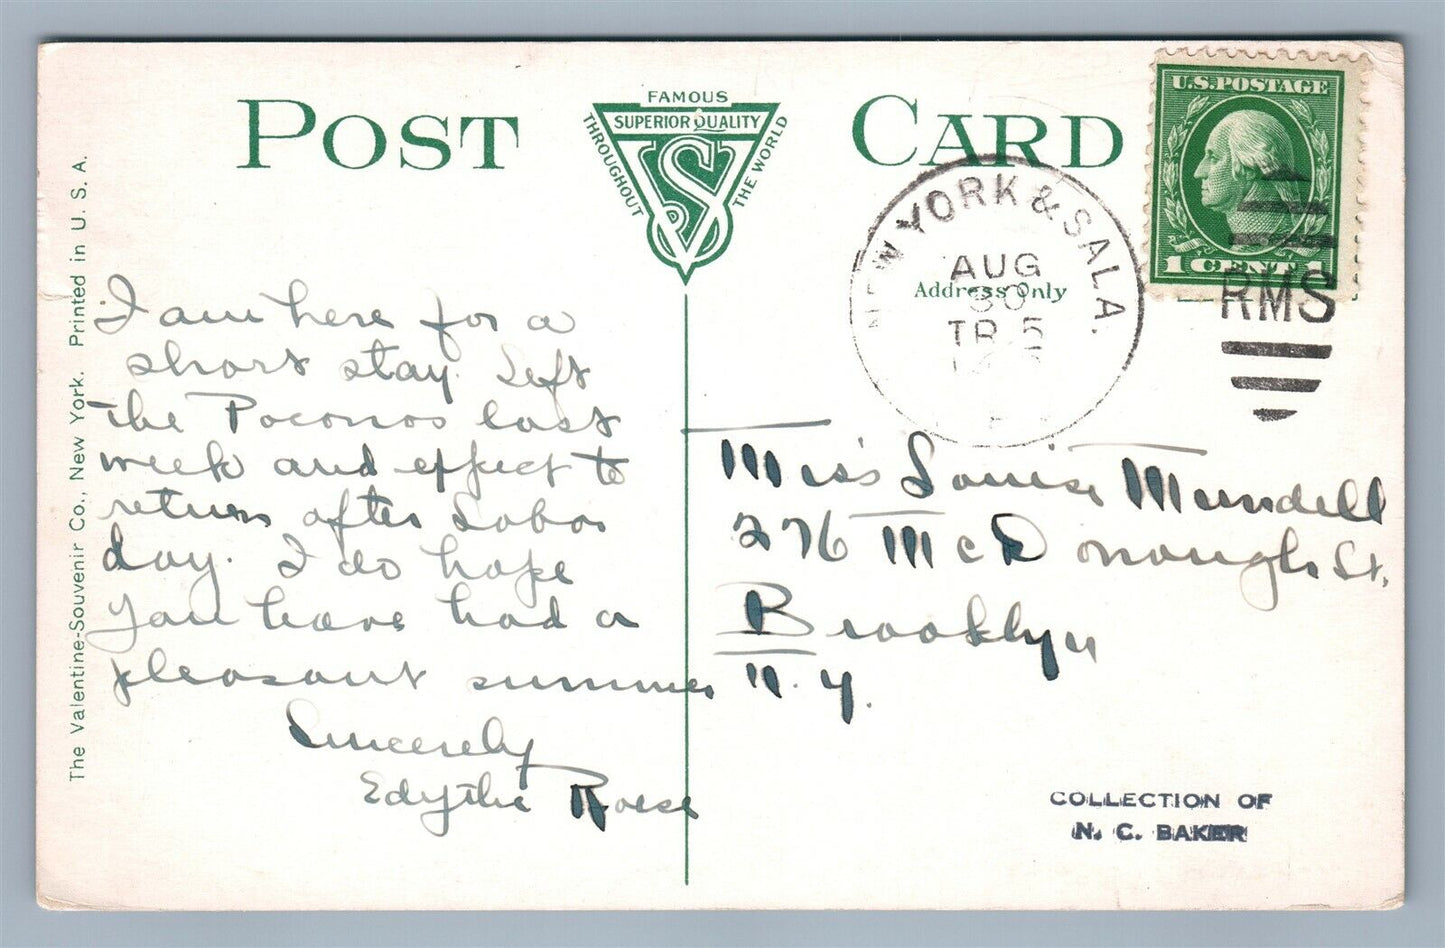 POST CARD
FAMOUS
SUPERIOR QUALITY
THROUGHOUT
THE WORLD
VS Co
U.S. POSTAGE
1 CENT 1
NEW YORK & SALA.
AUG
30
TR 5
RMS
Address Only
The Valentine-Souvenir Co., New York. Printed in U. S. A.
I am here for a
short stay. Left
the Poconos last
week and effect to
return after Labor
day. I do hope
you have had a
pleasant summer
Sincerely
Edythe
Miss Louise Mundell
276 McDonough St.
Brooklyn
N.Y.
COLLECTION OF
N. C. BAKER